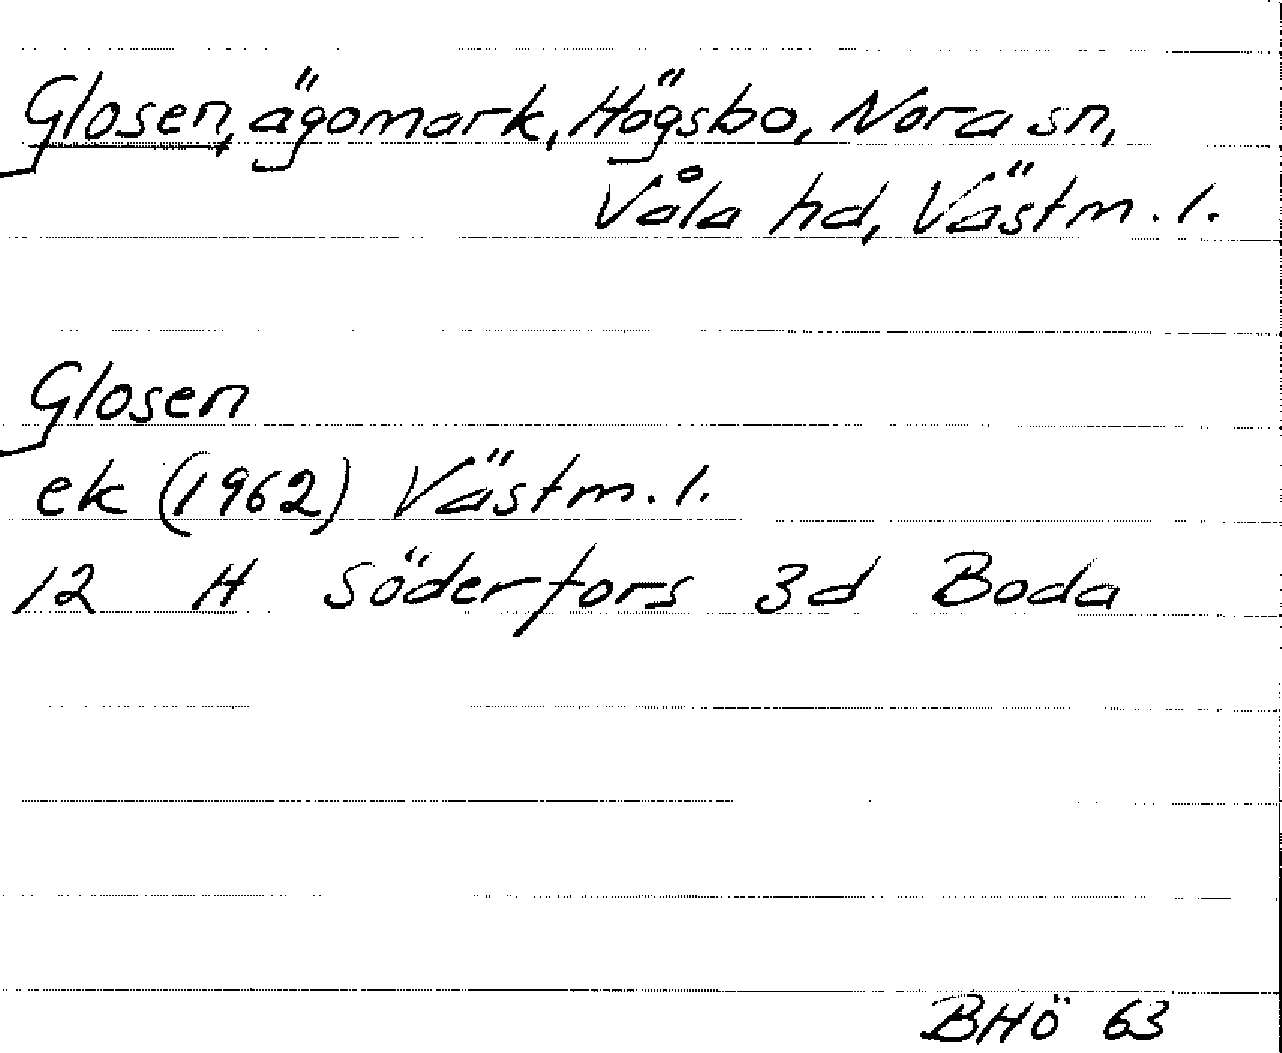 Glosen, ägomark, Högsbo, Nora sn,
Våla hd, Västm. l.
Glosen
ek (1962) Västm. l.
12 H Söderfors 3d Boda
BHÖ 63